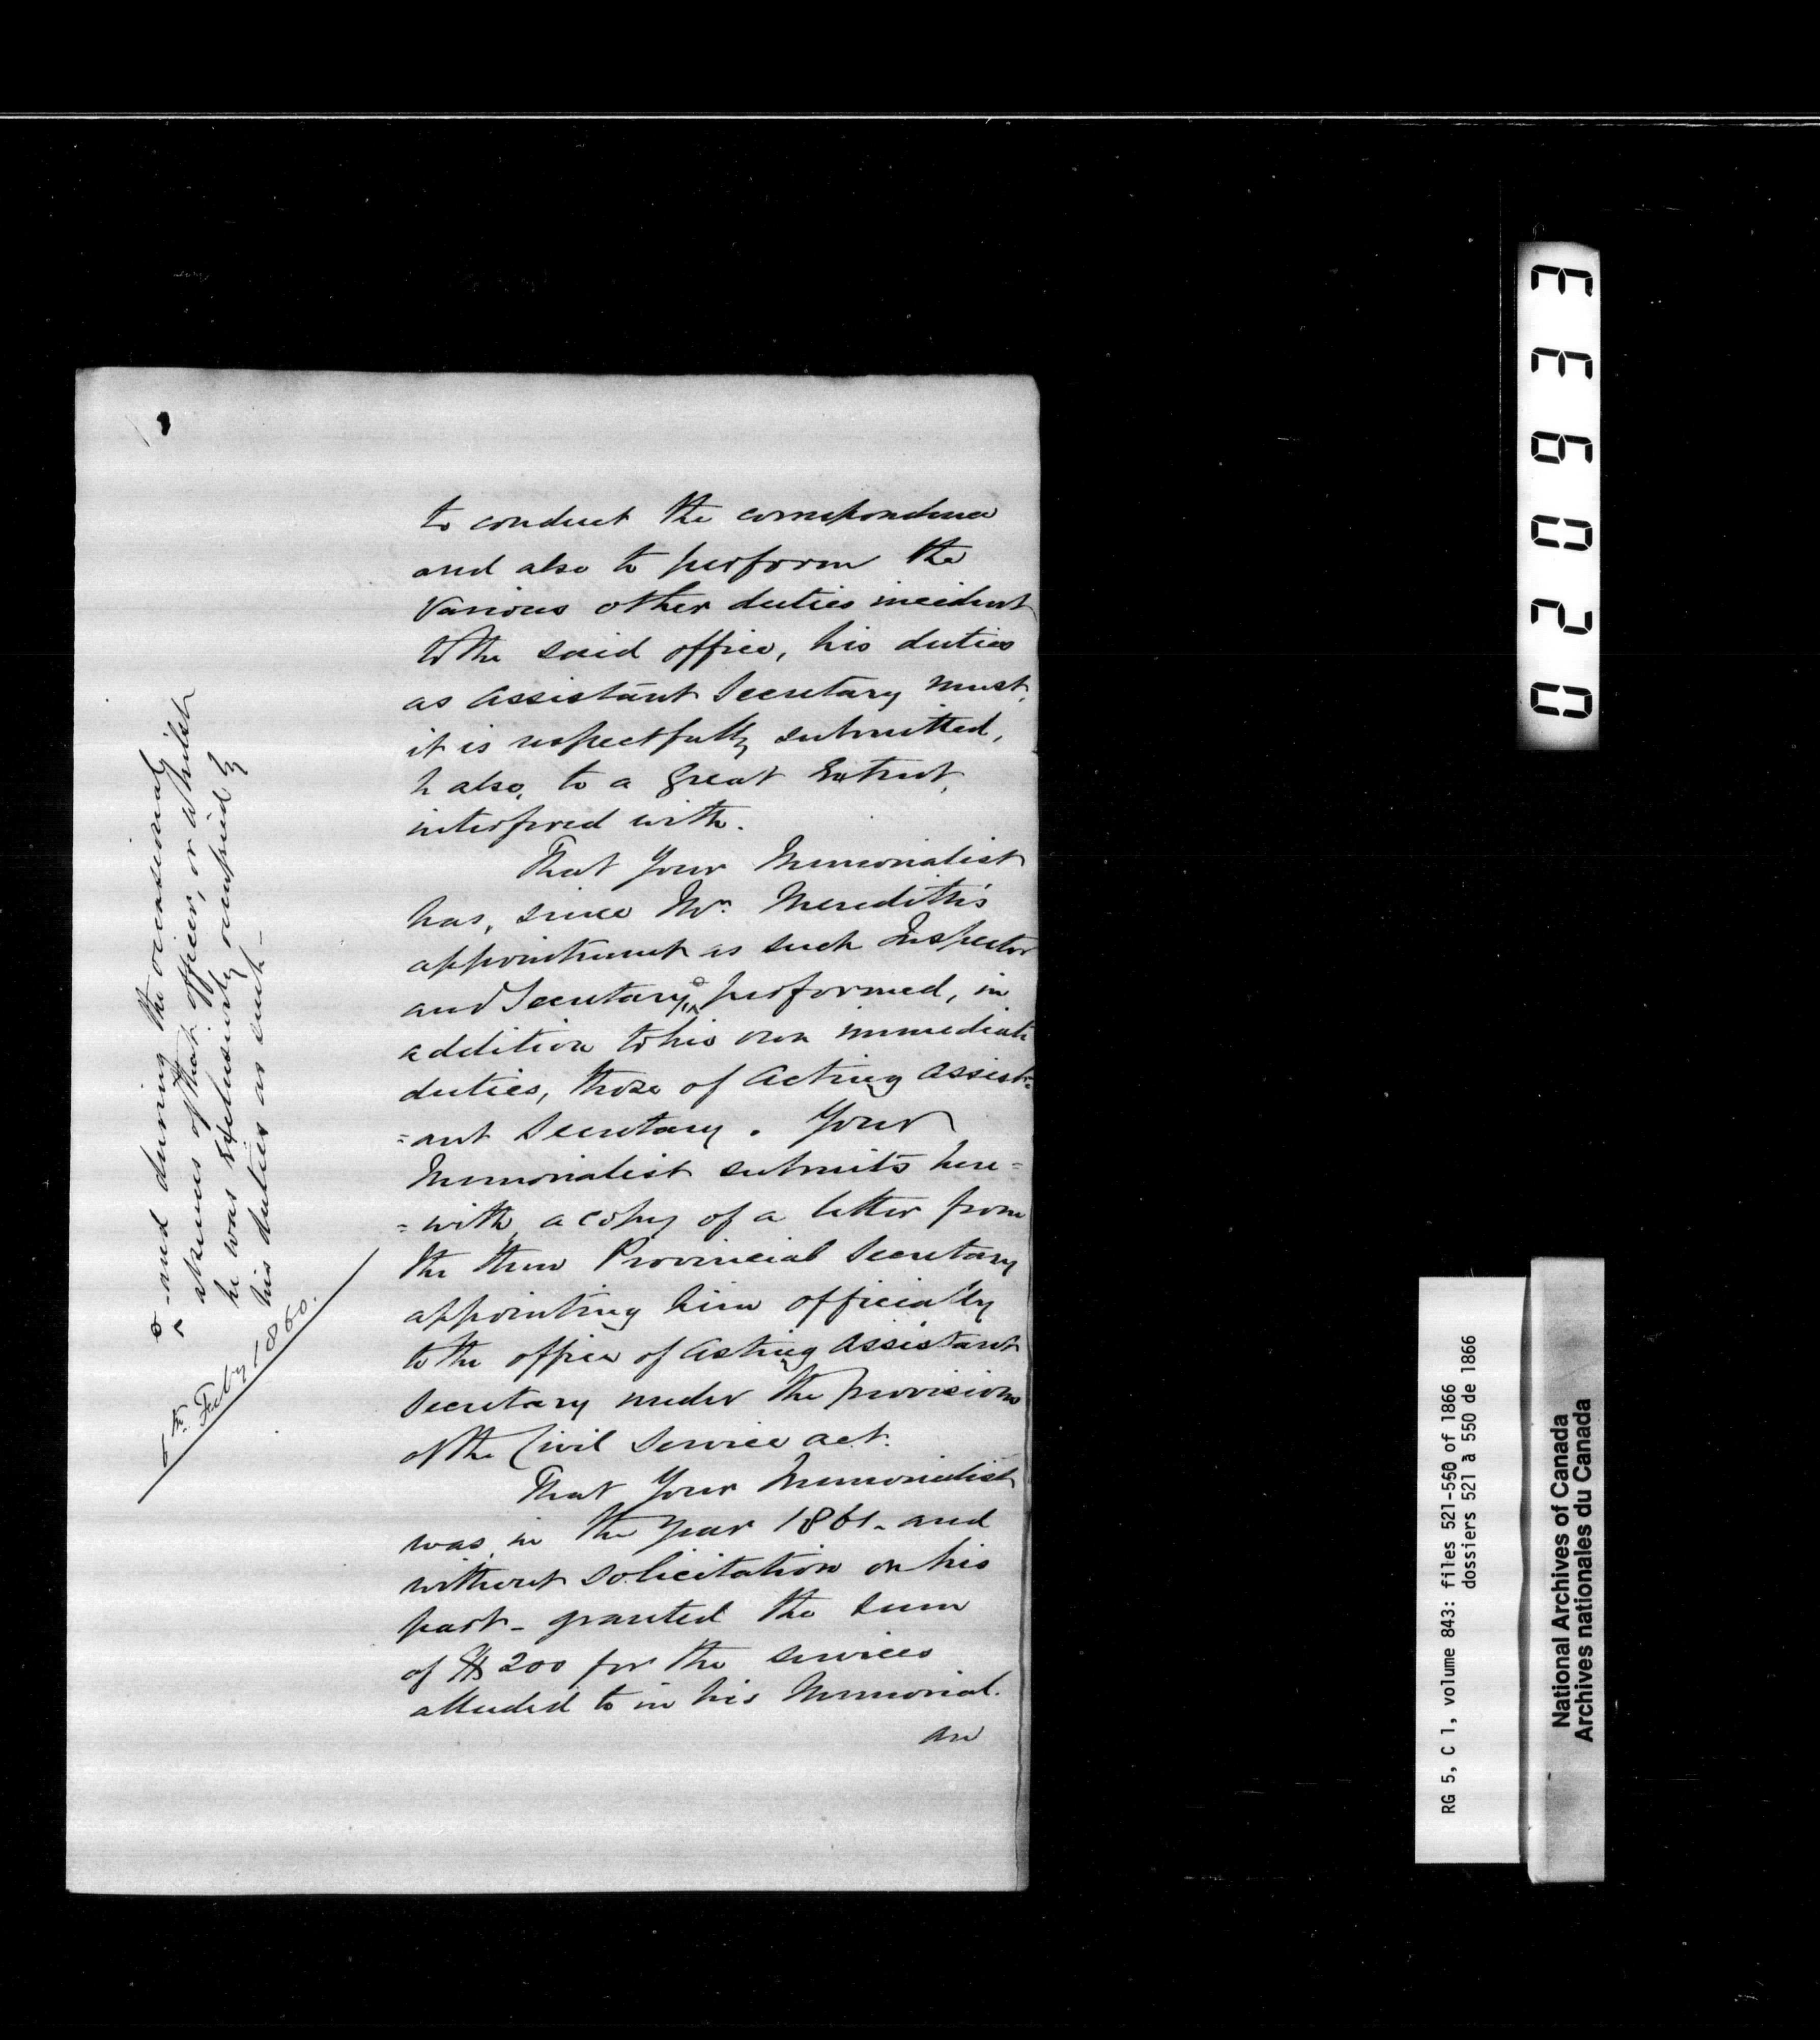 to conduct the correspondence
and also to perform the
various other duties incident
to the said office, his duties
as Assistant Secretary must,
it is respectfully submitted,
be also, to a great Extent,
interfered with.
That Your Memorialist
has, since Mr. Meredith's
appointment as such Inspector
and Secretary, performed, in
addition to his own immediate
duties, those of Acting Assist-
=ant Secretary. Your
Memorialist submits here=
=with, a copy of a letter from
the then Provincial Secretary
appointing him officially
to the office of Acting Assistant
Secretary under the provisions
of the Civil Service Act.
That Your Memorialist
was, in the year 1861 - and
without solicitation on his
part - granted the sum
of $200 for the services
alluded to in his Memorial.
-and during the occasional
absences of that officer, or whilst
he was Exclusively occupied by
his duties as such -
Feby 1860.
020633
RG 5, C 1, volume 843: files 521-550 of 1866
dossiers 521 à 550 de 1866
National Archives of Canada
Archives nationales du Canada